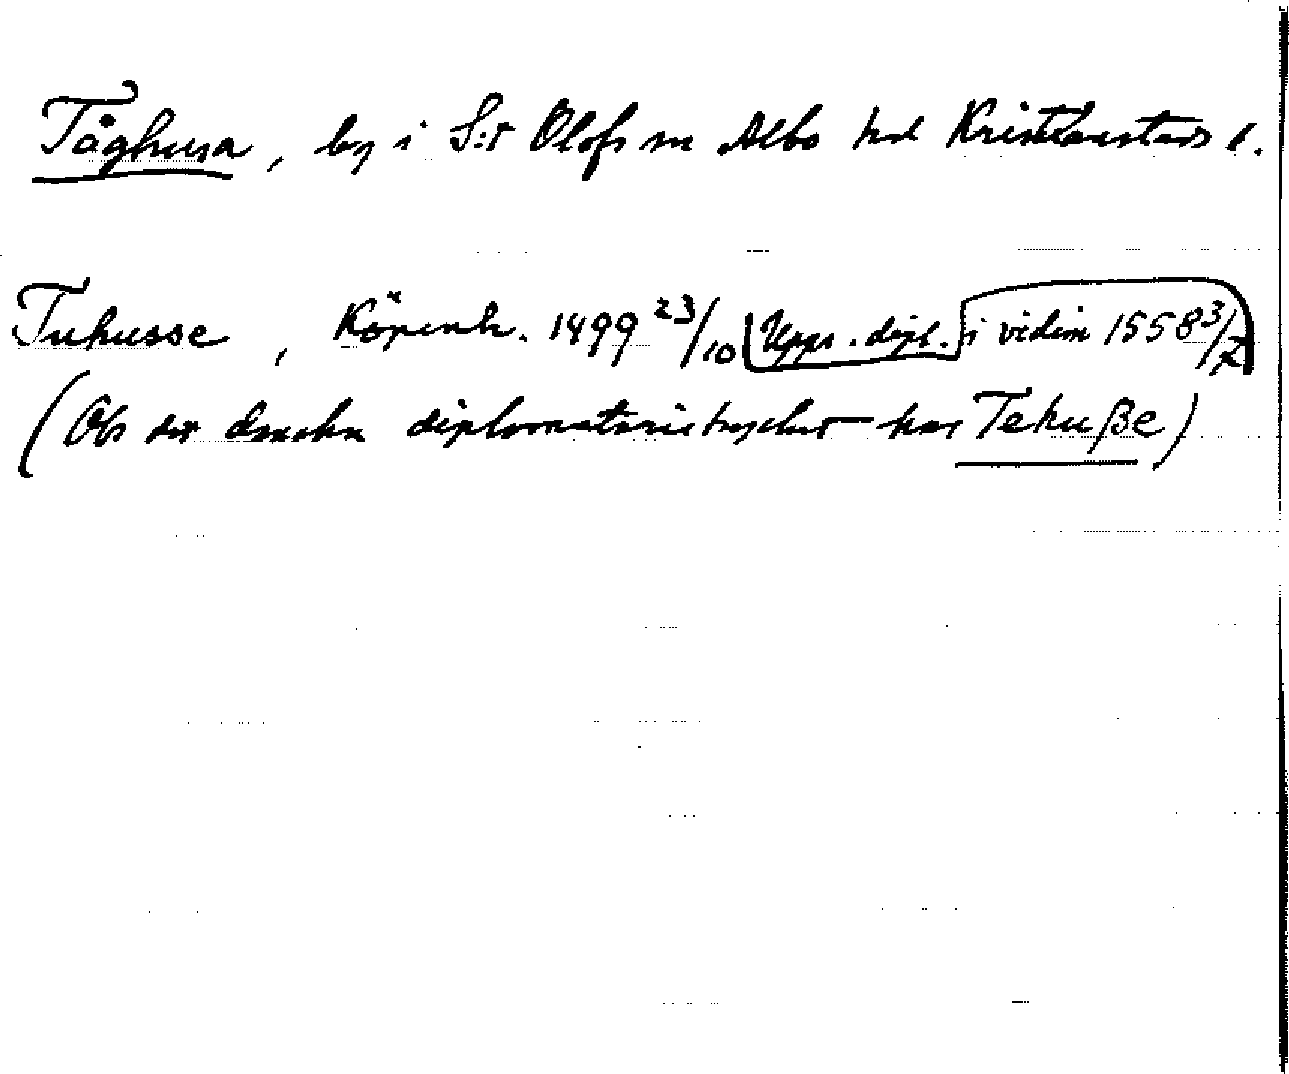 Tåghusa, by i S:t Olofs sn Albo hd Kristianstads l.
Tuhusse, Köpenh. 1499 23/10 Upps. dipl. i vidim 1558 3/7
(Obs det danska diplomatarietrycket har Tehuße)